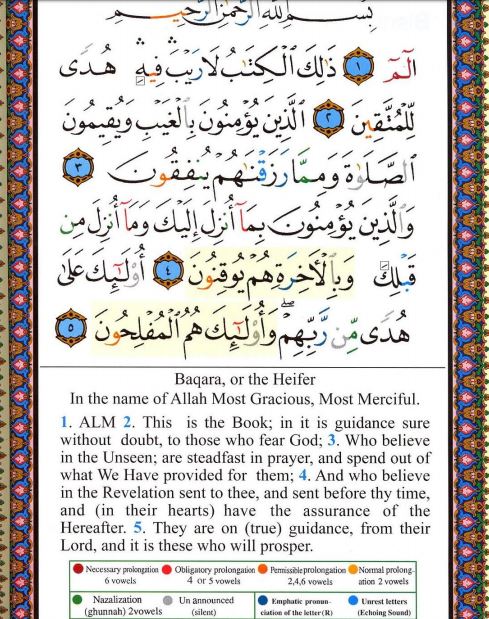 بِسْمِ اللَّهِ الرَّحْمَٰنِ الرَّحِيمِ
الٓمٓ ١ ذَٰلِكَ الْكِتَٰبُ لَا رَيْبَ ۛ فِيهِ ۛ هُدًى
لِّلْمُتَّقِينَ ٢ الَّذِينَ يُؤْمِنُونَ بِالْغَيْبِ وَيُقِيمُونَ
الصَّلَوٰةَ وَمِمَّا رَزَقْنَٰهُمْ يُنفِقُونَ ٣
وَالَّذِينَ يُؤْمِنُونَ بِمَآ أُنزِلَ إِلَيْكَ وَمَآ أُنزِلَ مِن
قَبْلِكَ وَبِالْأَخِرَةِ هُمْ يُوقِنُونَ ٤ أُوْلَٰٓئِكَ عَلَىٰ
هُدًى مِّن رَّبِّهِمْ ۖ وَأُوْلَٰٓئِكَ هُمُ الْمُفْلِحُونَ ٥
Baqara, or the Heifer
In the name of Allah Most Gracious, Most Merciful.
1. ALM 2. This is the Book; in it is guidance sure
without doubt, to those who fear God; 3. Who believe
in the Unseen; are steadfast in prayer, and spend out of
what We Have provided for them; 4. And who believe
in the Revelation sent to thee, and sent before thy time,
and (in their hearts) have the assurance of the
Hereafter. 5. They are on (true) guidance, from their
Lord, and it is these who will prosper.
Necessary prolongation 6 vowels
Obligatory prolongation 4 or 5 vowels
Permissible prolongation 2,4,6 vowels
Normal prolongation 2 vowels
Nazalization (ghunnah) 2vowels
Un announced (silent)
Emphatic pronunciation of the letter (R)
Unrest letters (Echoing Sound)